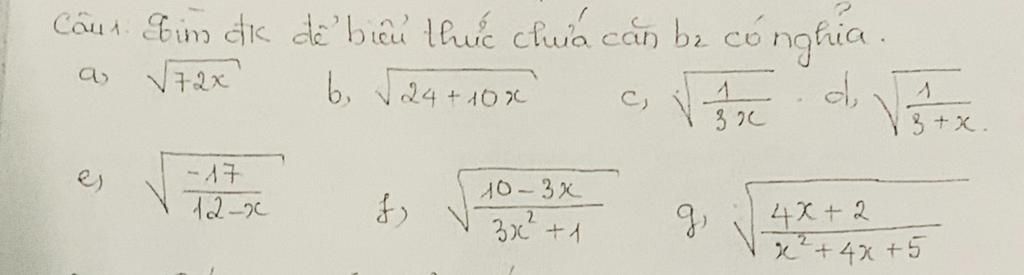 Câu 1: Tìm đk để biểu thức chứa căn b2 có nghĩa.
a, √72x b, √24 + 10x c, √1/3x . d, √1/3 + x.
e, √-17/12-x f, √10-3x/3x²+1 g, √4x+2/x²+4x+5